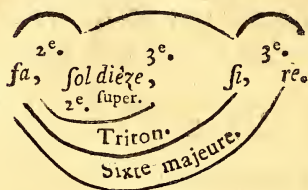 2e. 3e. 3e.
fa, ſol dièze, ſi, re.
2e. ſuper.
Triton.
Sixte majeure.